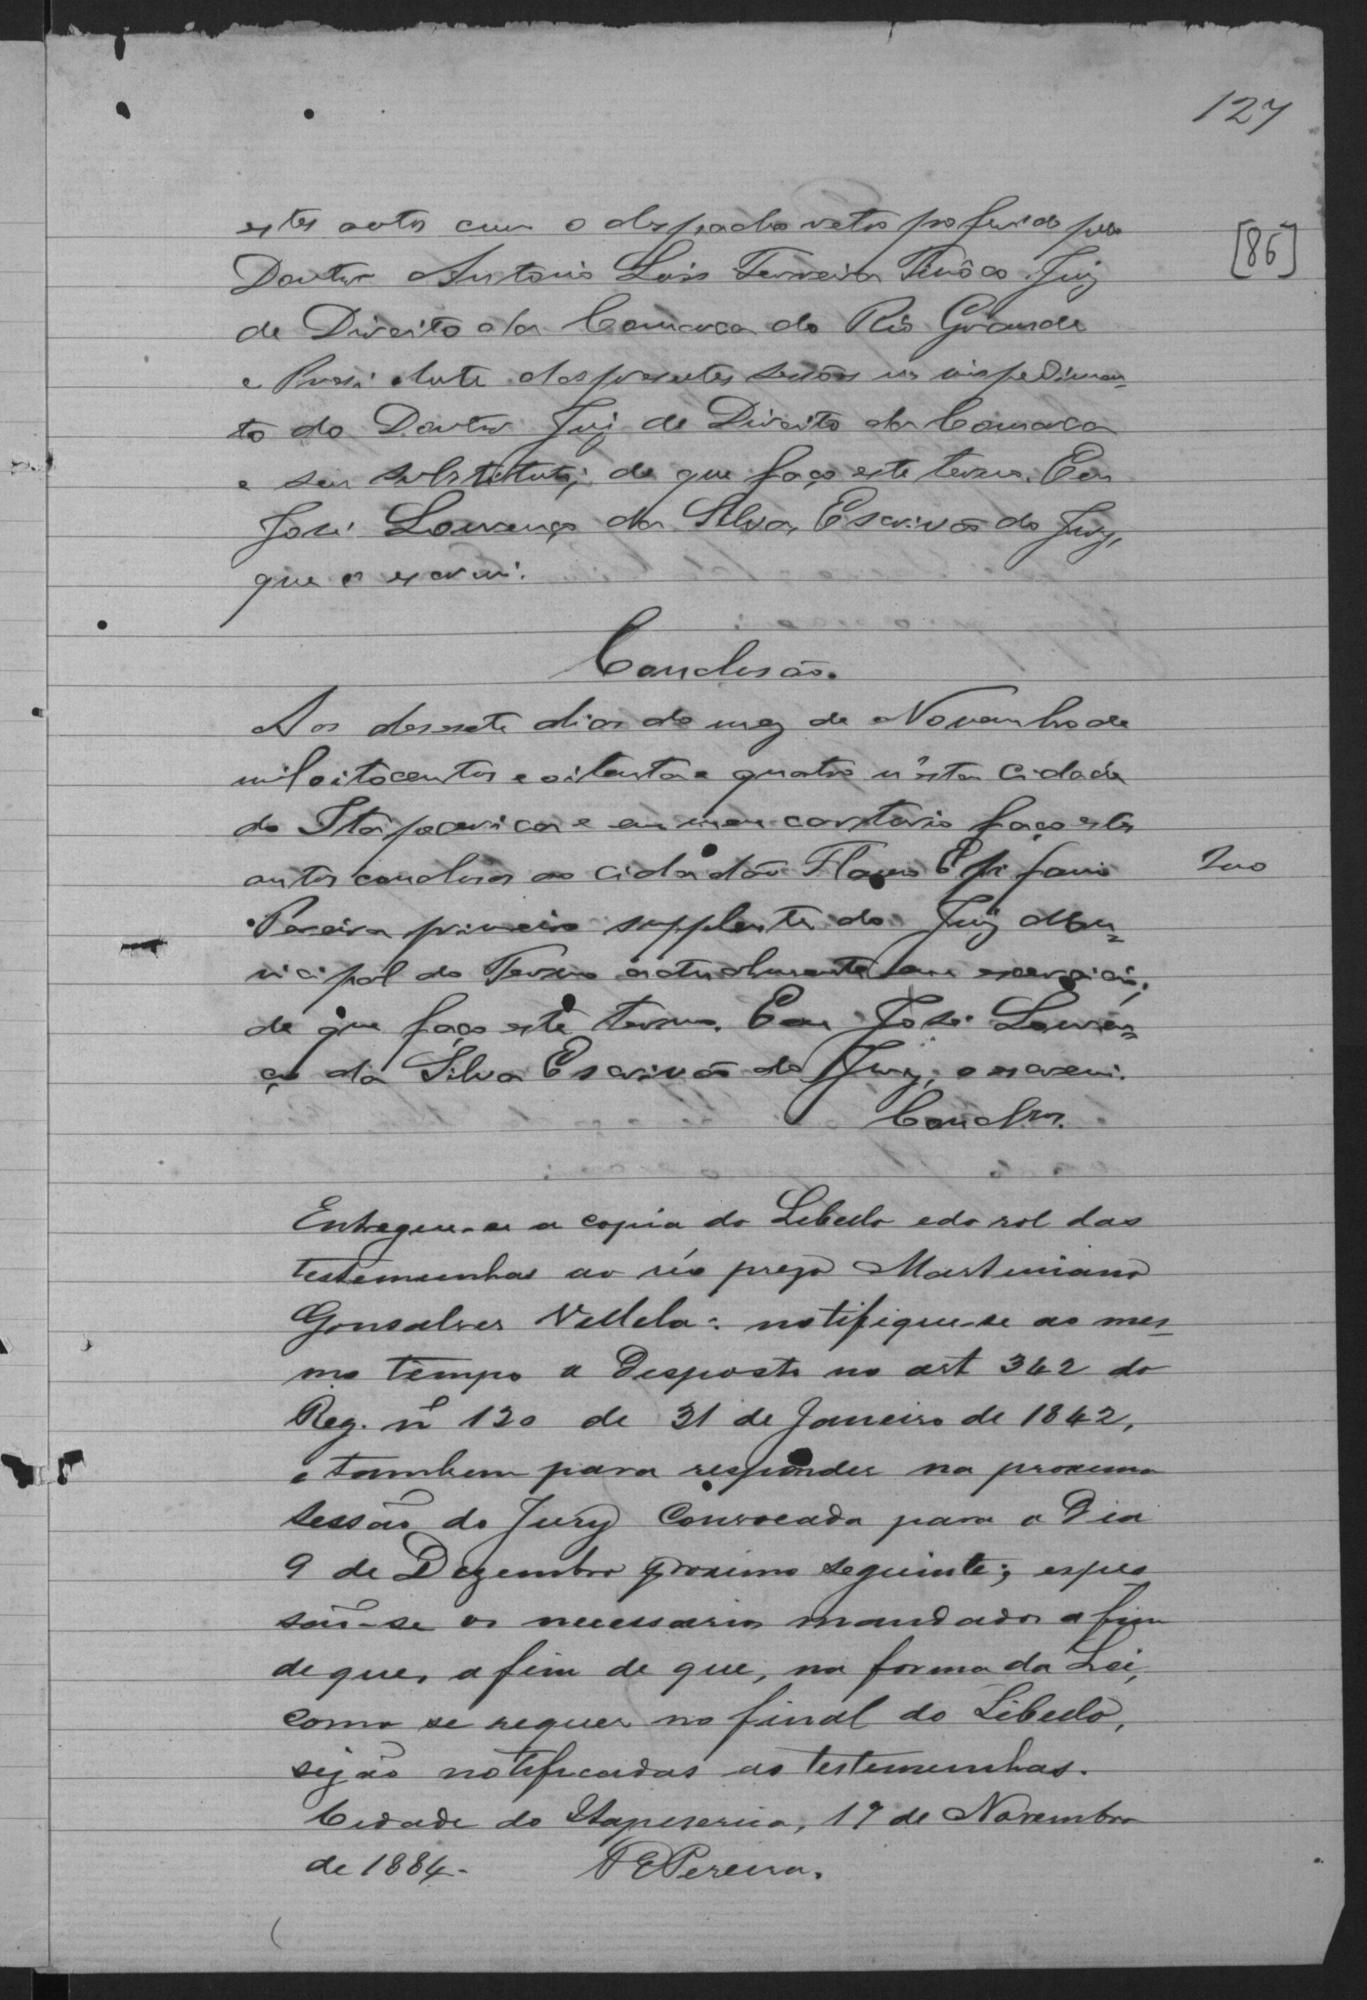 127
[86]
estes autos com o despacho retro proferido pelo
Doutor Antonio Luis Ferreira Tinôco Juiz
de Direito da Comarca do Rio Grande
e Presidente das presentes sessões no impedimen-
to do Doutor Juiz de Direito da Comarca
e seu substituto; de que faço este termo. Eu
José Lourenço da Silva, Escrivão do Jury,
que o escrevi.
Conclusão.
Aos desesete dias do mez de Novembro de
mil oitocentos e oitenta e quatro n'esta Cidade
do Itapecerica e em meu cartorio faço estes
autos conclusos ao Cidadão Flavio Epifanio
Pereira primeiro supplente do Juiz Mu-
nicipal do Termo actualmente em exercicio;
de que faço este termo. Eu José Louren-
ço da Silva Escrivão do Jury, o escrevi.
Conclsos.
Entregue-se a copia do Libello e do rol das
testemunhas ao réo prezo Martiniano
Gonsalves Villela: notifique-se ao mes-
mo tempo o Disposto no art 342 do
Reg. nº 120 de 31 de Janeiro de 1842,
e tambem para responder na proxima
sessão do Jury Convocada para o Dia
9 de Dezembro proximo seguinte; espes
são-se os necessarios mandados a fim
de que, a fim de que, na forma da Lei,
como se requer no final do Libello,
sejão notificadas as testemunhas.
Cidade do Itapeserica, 17 de Novembro
de 1884. F E Pereira.